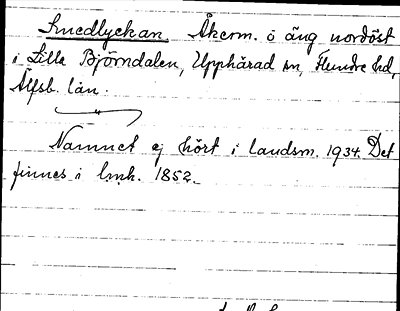 Smedlyckan. Åkerm. o äng nordöst
i Lilla Björndalen, Upphärad sn, Flundre hd,
Älfsb. län.
Namnet ej hört i landsm. 1934. Det
finnes i lmh. 1852.